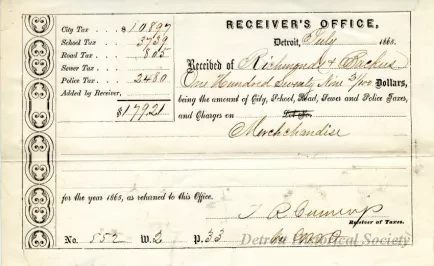 RECEIVER'S OFFICE,
Detroit, 3 July 1865.
City Tax $108 97
School Tax 37 39
Road Tax 8 05
Sewer Tax
Police Tax 24 80
Added by Receiver,
$179 21
Received of Richmonds & Backus
One Hundred Seventy Nine 21/100 Dollars,
being the amount of City, School, Road, Sewer and Police Taxes,
and Charges on
Merchchandise
for the year 1865, as returned to this Office.
Receiver of Taxes.
No. 552 W. 2 P. 33
Detroit Historical Society